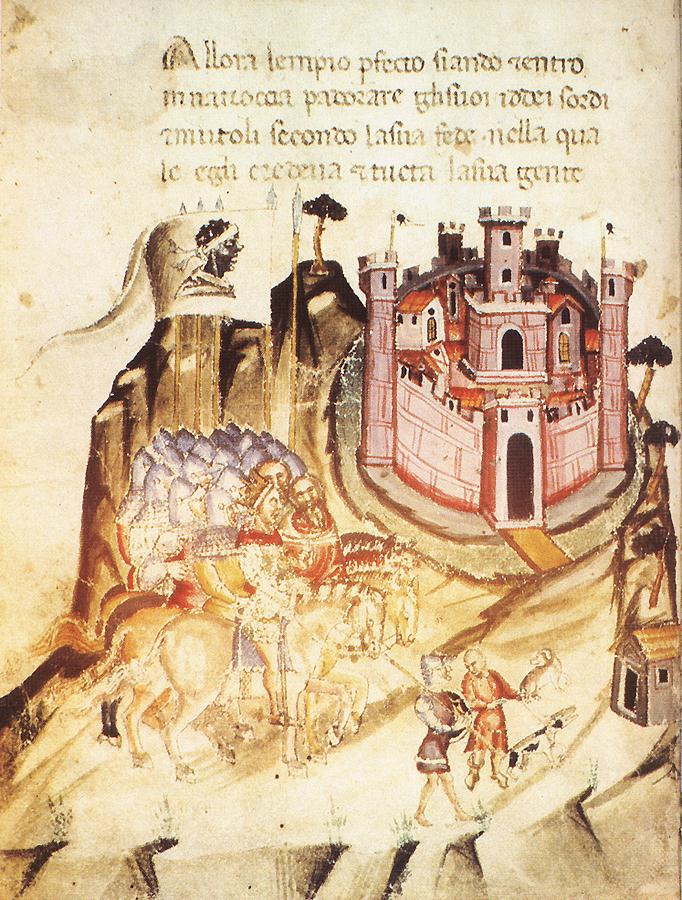 Allora lempio pfecto siando ⁊entro
inunaroccia padorare glisuoi iddei sordi
⁊mutoli secondo lasua fede nella qua
le egli credeua ⁊tucta lasua gente